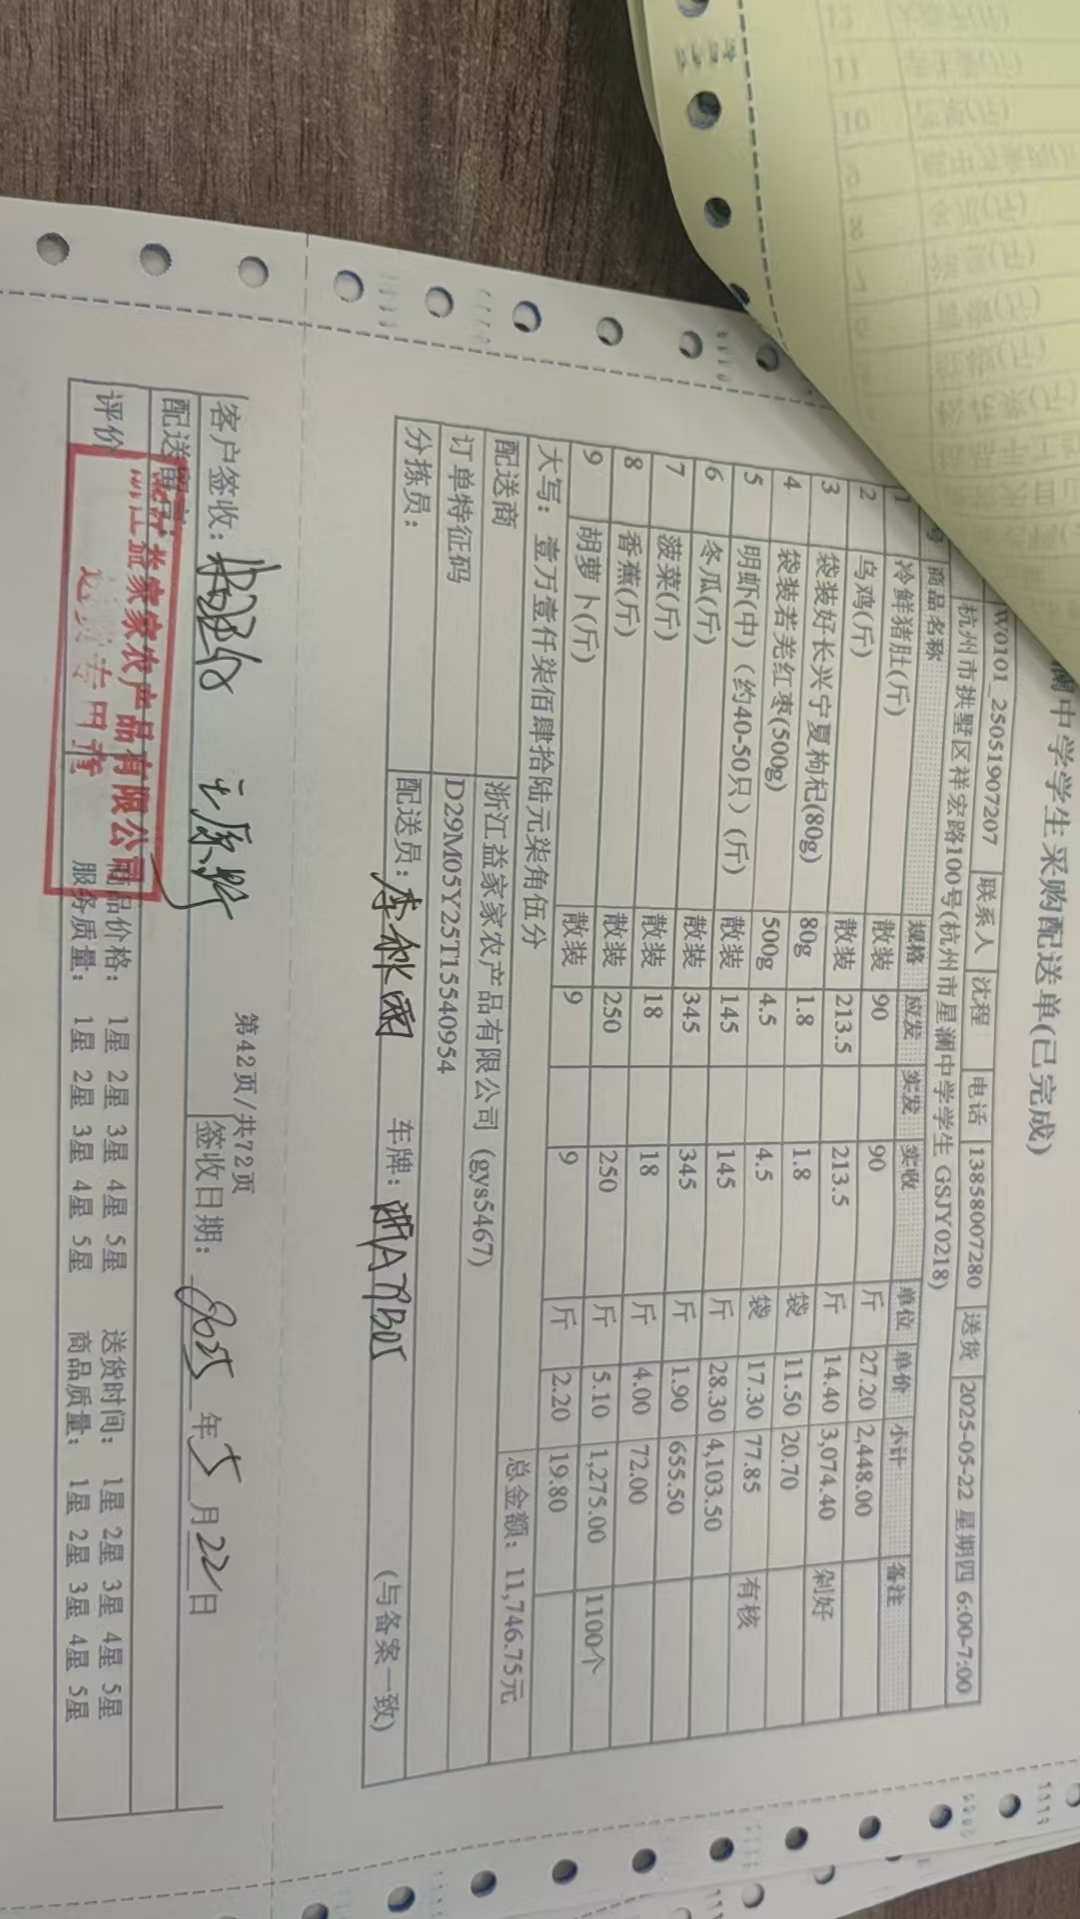 澜中学学生采购配送单(已完成)
W0101_25051907207 联系人 沈程 电话 13858007280 送货 2025-05-22 星期四 6:00-7:00
杭州市拱墅区祥宏路100号(杭州市星澜中学学生 GSJY0218)
号 商品名称 规格 应发 实发 实收 单位 单价 小计 备注
1 冷鲜猪肚(斤) 散装 90 90 斤 27.20 2,448.00
2 乌鸡(斤) 散装 213.5 213.5 斤 14.40 3,074.40 剁好
3 袋装好长兴宁夏枸杞(80g) 80g 1.8 1.8 袋 11.50 20.70
4 袋装若羌红枣(500g) 500g 4.5 4.5 袋 17.30 77.85 有核
5 明虾(中)(约40-50只)(斤) 散装 145 145 斤 28.30 4,103.50
6 冬瓜(斤) 散装 345 345 斤 1.90 655.50
7 菠菜(斤) 散装 18 18 斤 4.00 72.00
8 香蕉(斤) 散装 250 250 斤 5.10 1,275.00 1100个
9 胡萝卜(斤) 散装 9 9 斤 2.20 19.80
大写: 壹万壹仟柒佰肆拾陆元柒角伍分 总金额: 11,746.75元
配送商 浙江益家家农产品有限公司 (gys5467)
订单特征码 D29M05Y25T15540954
分拣员: 配送员: 车牌: (与备案一致)
第42页/共72页
客户签收: 签收日期: 2025年5月22日
配送
评价 商品价格: 1星 2星 3星 4星 5星 送货时间: 1星 2星 3星 4星 5星
服务质量: 1星 2星 3星 4星 5星 商品质量: 1星 2星 3星 4星 5星
浙江益家家农产品有限公司
专用章